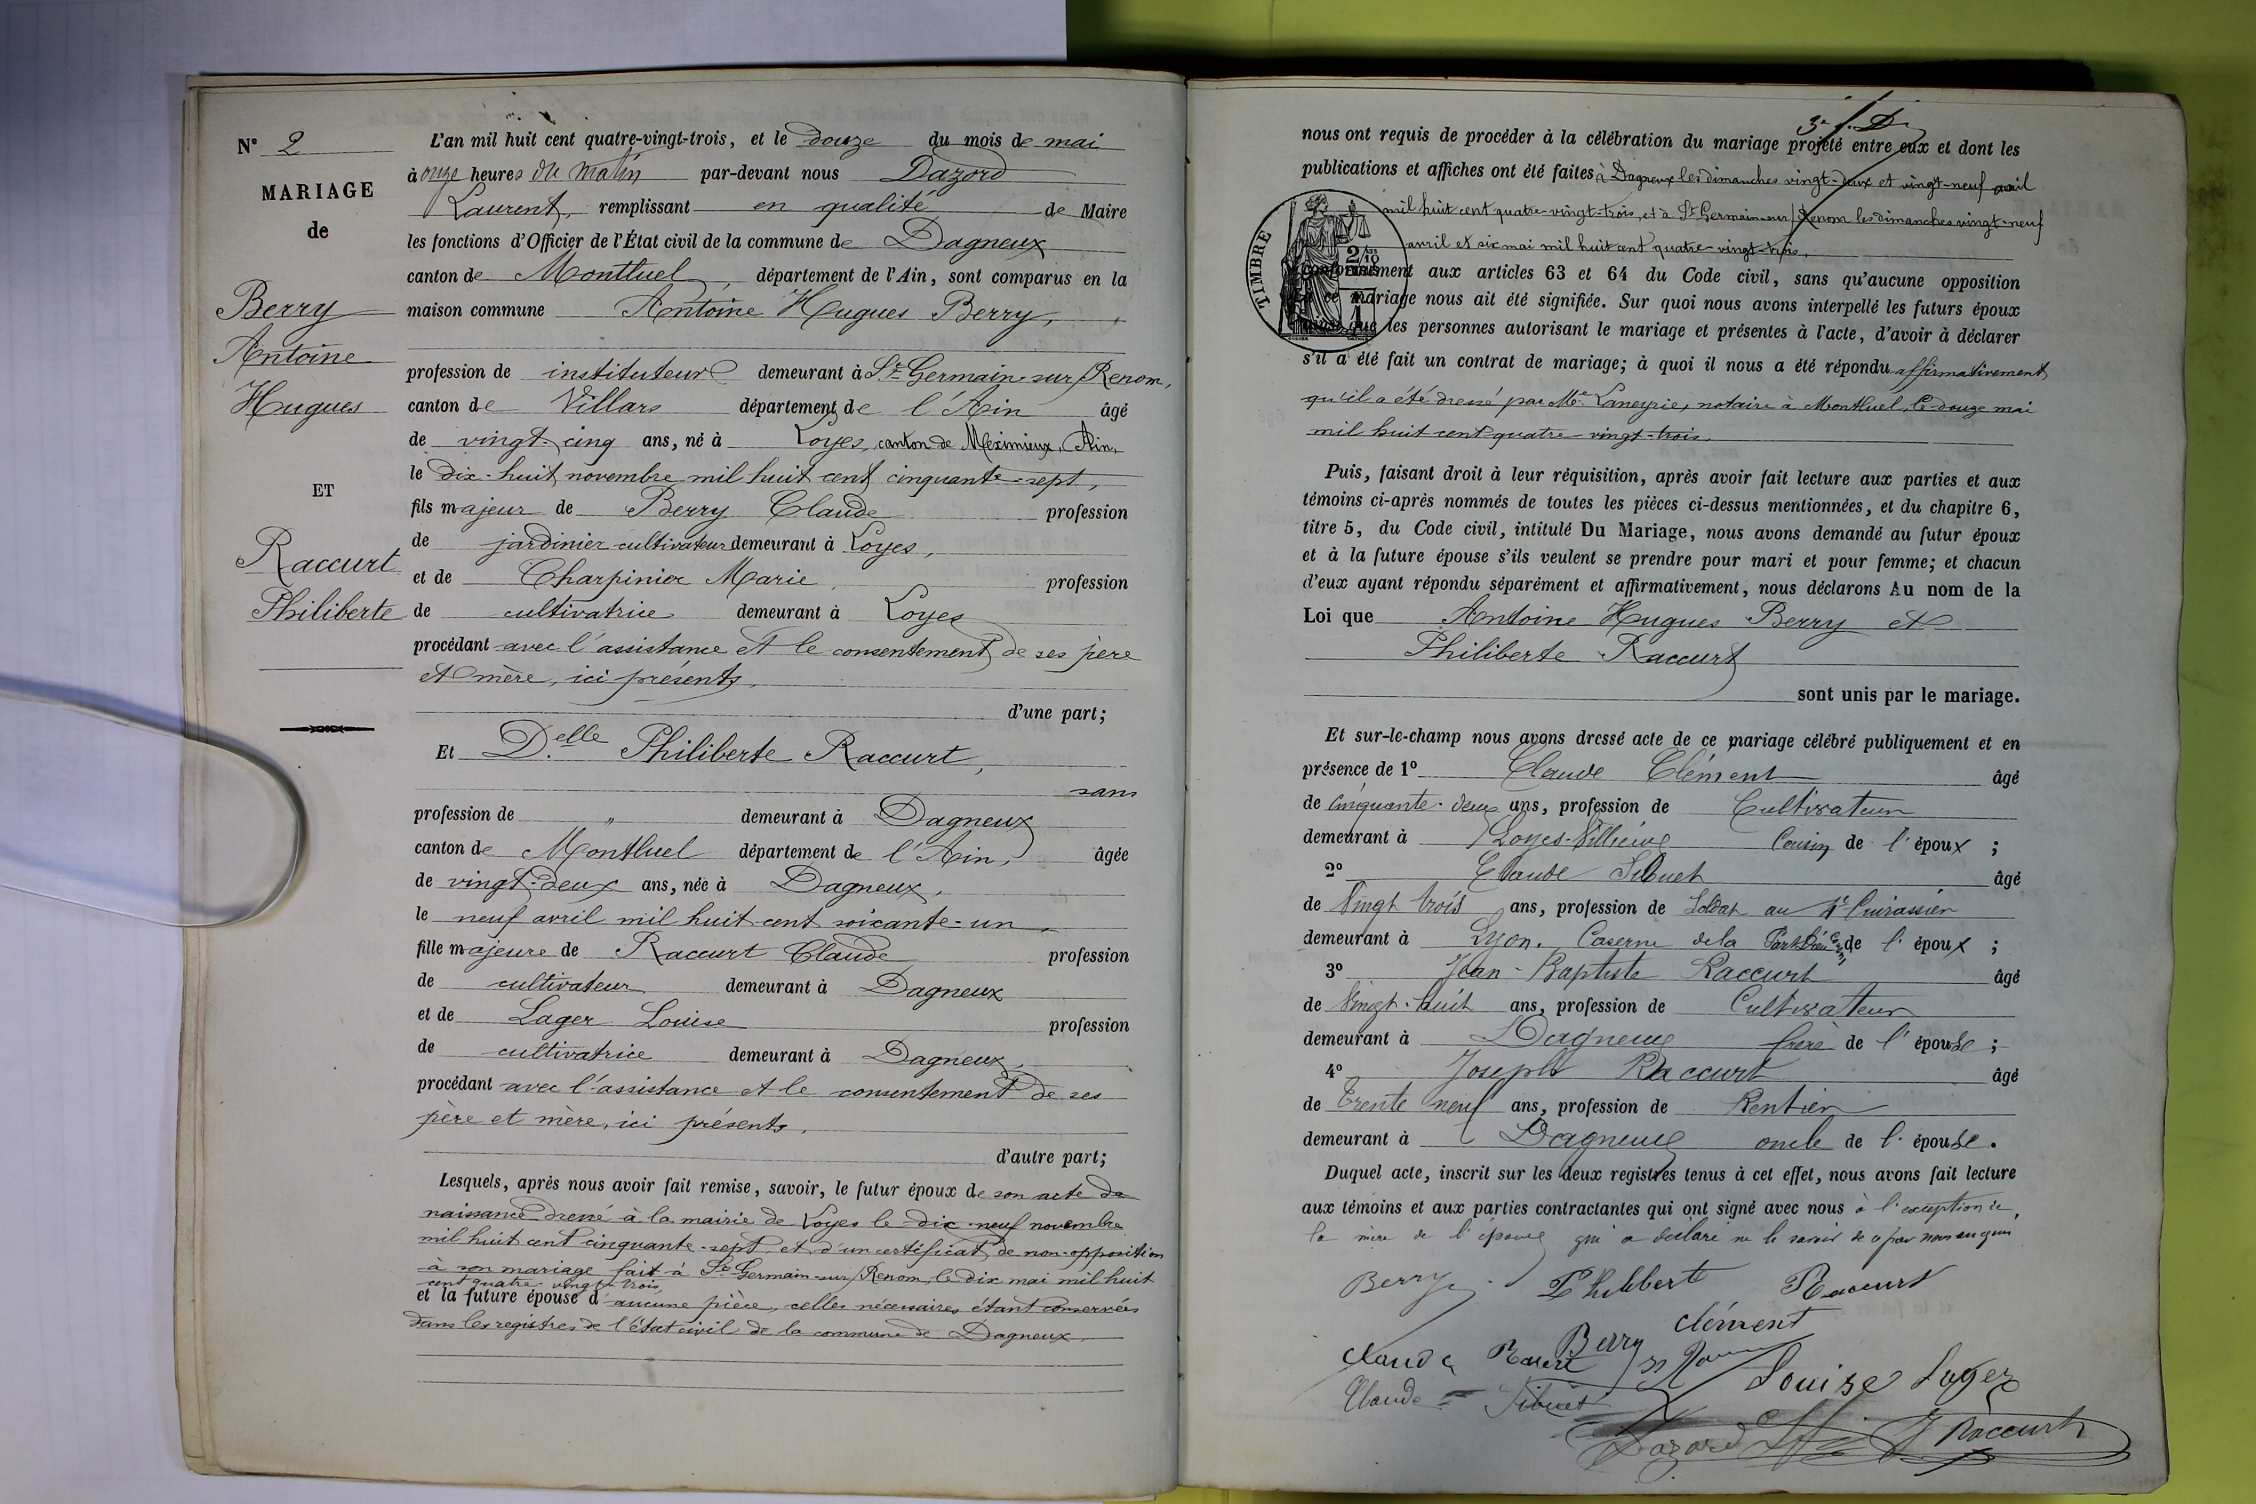 N° 2
MARIAGE
de
Berry
Antoine
Hugues
ET
Raccurt
Philiberte
L'an mil huit cent quatre-vingt-trois, et le douze du mois de mai
à onze heures du matin par-devant nous Dazord
Laurent, remplissant en qualité de Maire
les fonctions d'Officier de l'État civil de la commune de Dagneux
canton de Montluel, département de l'Ain, sont comparus en la
maison commune Antoine Hugues Berry,
profession de instituteur demeurant à St Germain-sur-Renom,
canton de Villars département de l'Ain âgé
de vingt-cinq ans, né à Loyes, canton de Meximieux, Ain,
le dix-huit novembre mil huit cent cinquante-sept,
fils majeur de Berry Claude profession
de jardinier-cultivateur demeurant à Loyes,
et de Charpinier Marie, profession
de cultivatrice demeurant à Loyes
procédant avec l'assistance et le consentement de ses père
et mère, ici présents,
d'une part;
Et Delle Philiberte Raccurt,
sans
profession de " demeurant à Dagneux
canton de Montluel département de l'Ain, âgée
de vingt-deux ans, née à Dagneux,
le neuf avril mil huit cent soixante-un,
fille majeure de Raccurt Claude profession
de cultivateur demeurant à Dagneux
et de Lager Louise profession
de cultivatrice demeurant à Dagneux,
procédant avec l'assistance et le consentement de ses
père et mère, ici présents,
d'autre part;
Lesquels, après nous avoir fait remise, savoir, le futur époux de son acte de
naissance dressé à la mairie de Loyes le dix-neuf novembre
mil huit cent cinquante-sept, et d'un certificat de non-opposition
à son mariage fait à St Germain-sur-Renom, le dix mai mil huit
cent quatre-vingt-trois,
et la future épouse d'aucune pièce, celles nécessaires étant conservées
dans les registres de l'état civil de la commune de Dagneux.
3e f. D.
nous ont requis de procéder à la célébration du mariage projeté entre eux et dont les
publications et affiches ont été faites à Dagneux les dimanches vingt-deux et vingt-neuf avril
mil huit cent quatre-vingt-trois, et à St Germain-sur-Renom les dimanches vingt-neuf
avril et six mai mil huit cent quatre-vingt-trois,
TIMBRE
conformément aux articles 63 et 64 du Code civil, sans qu'aucune opposition
à ce mariage nous ait été signifiée. Sur quoi nous avons interpellé les futurs époux
ainsi que les personnes autorisant le mariage et présentes à l'acte, d'avoir à déclarer
s'il a été fait un contrat de mariage; à quoi il nous a été répondu affirmativement
qu'il a été dressé par Me Laneyrie, notaire à Montluel, le douze mai
mil huit cent quatre-vingt-trois.
Puis, faisant droit à leur réquisition, après avoir fait lecture aux parties et aux
témoins ci-après nommés de toutes les pièces ci-dessus mentionnées, et du chapitre 6,
titre 5, du Code civil, intitulé Du Mariage, nous avons demandé au futur époux
et à la future épouse s'ils veulent se prendre pour mari et pour femme; et chacun
d'eux ayant répondu séparément et affirmativement, nous déclarons Au nom de la
Loi que Antoine Hugues Berry et
Philiberte Raccurt
sont unis par le mariage.
Et sur-le-champ nous avons dressé acte de ce mariage célébré publiquement et en
présence de 1° Claude Clément âgé
de cinquante-deux ans, profession de Cultivateur
demeurant à Loyes-Villieux Cousin de l'époux ;
2° Claude Sibuet âgé
de Vingt trois ans, profession de Soldat au 4e Cuirassier
demeurant à Lyon. Caserne de la Part Dieu de l'époux ;
3° Jean-Baptiste Raccurt âgé
de Vingt-huit ans, profession de Cultivateur
demeurant à Dagneux frère de l'épouse ;
4° Joseph Raccurt âgé
de Trente neuf ans, profession de Rentier
demeurant à Dagneux oncle de l'épouse.
Duquel acte, inscrit sur les deux registres tenus à cet effet, nous avons fait lecture
aux témoins et aux parties contractantes qui ont signé avec nous à l'exception de
la mère de l'époux qui a déclaré ne le savoir de ce par nous enquis
Berry Philibert Raccurt
Berry Clément
Claude
Claude Sibuet Louise Lager
Dazord J Raccurt